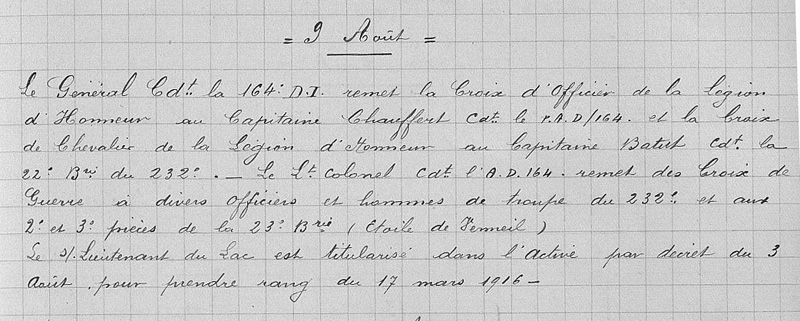 = 9 Août =
Le Général Cdt la 164e D.I. remet la Croix d'Officier de la Légion
d'Honneur au Capitaine Chauffert Cdt le P.A.D/164. et la Croix
de Chevalier de la Légion d'Honneur au Capitaine Batut Cdt la
22e Brie du 232e. _ Le Lt Colonel Cdt l'A.D.164. remet des Croix de
Guerre à divers Officiers et hommes de troupe du 232e et aux
2e et 3e pièces de la 23e Brie (Etoile de Vermeil)
Le s/. Lieutenant du Lac est titularisé dans l'active par décret du 3
Août. pour prendre rang du 17 mars 1916 _